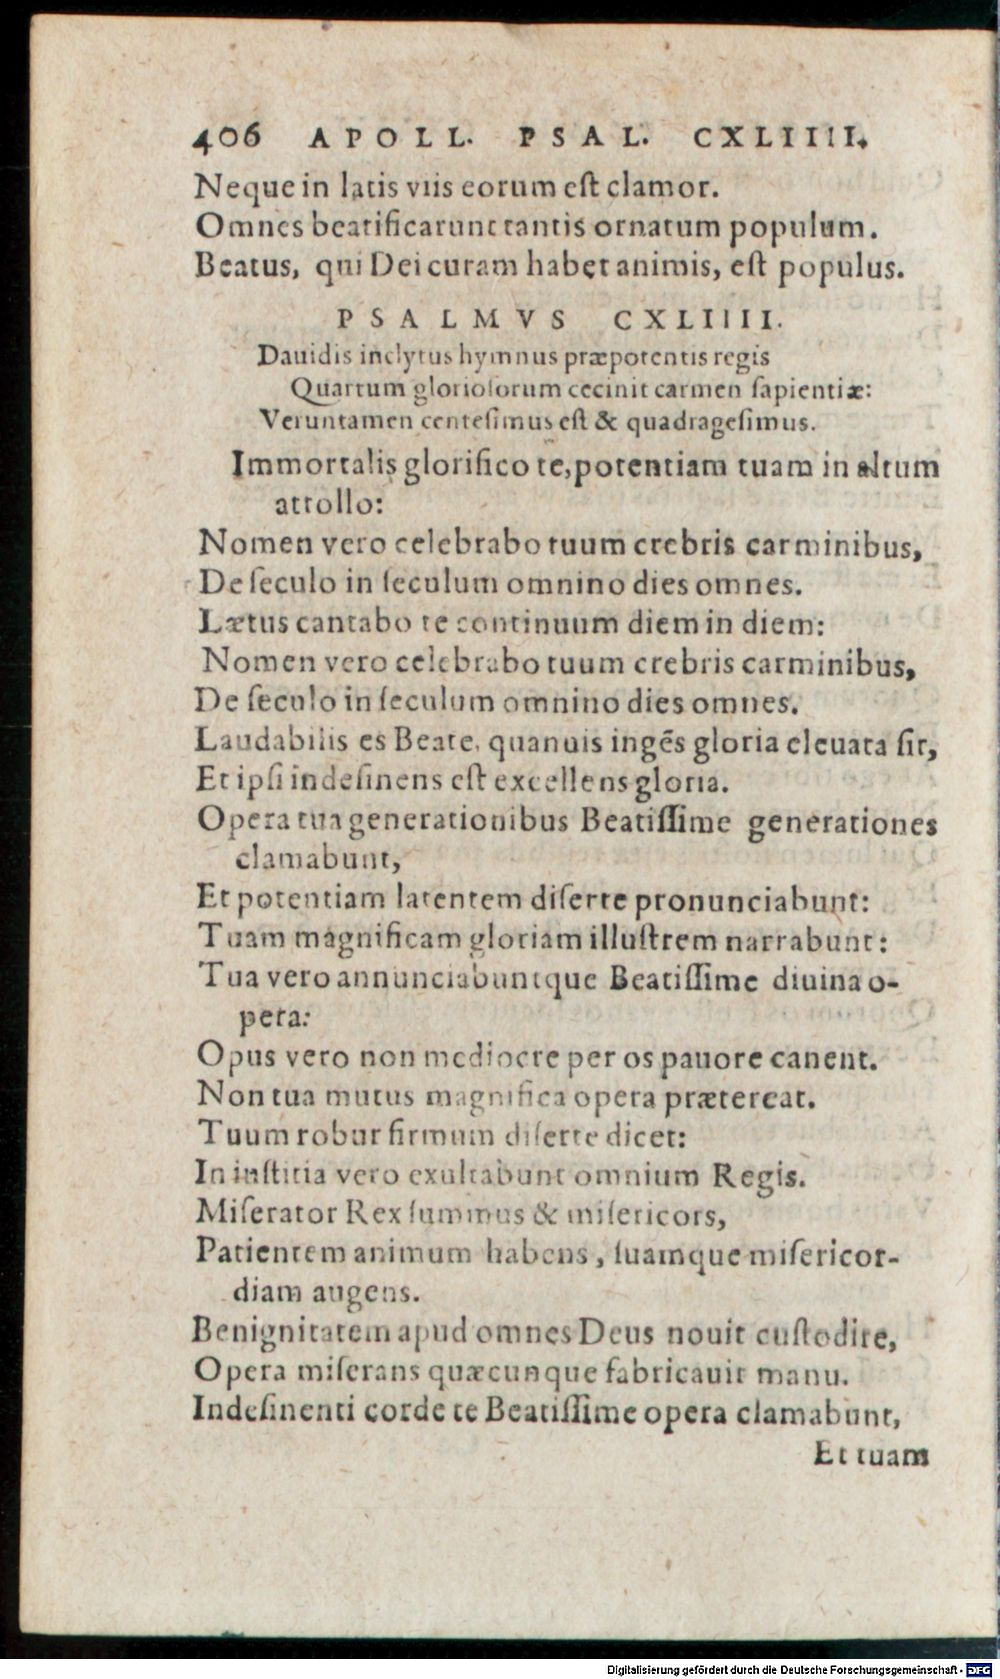 406 APOLL. PSAL. CXLIIII.
Neque in latis viis eorum est clamor.
Omnes beatificarunt tantis ornatum populum.
Beatus, qui Dei curam habet animis, est populus.
PSALMVS CXLIIII.
Dauidis inclytus hymnus præpotentis regis
Quartum gloriosorum cecinit carmen sapientiæ:
Veruntamen centesimus est & quadragesimus.
Immortalis glorifico te, potentiam tuam in altum
attollo:
Nomen vero celebrabo tuum crebris carminibus,
De seculo in seculum omnino dies omnes.
Lætus cantabo te continuum diem in diem:
Nomen vero celebrabo tuum crebris carminibus,
De seculo in seculum omnino dies omnes.
Laudabilis es Beate, quanuis ingẽs gloria eleuata sit,
Et ipsi indesinens est excellens gloria.
Opera tua generationibus Beatissime generationes
clamabunt,
Et potentiam latentem diserte pronunciabunt:
Tuam magnificam gloriam illustrem narrabunt:
Tua vero annunciabuntque Beatissime diuina o-
pera:
Opus vero non mediocre per os pauore canent.
Non tua mutus magnifica opera prætereat.
Tuum robur firmum diserte dicet:
In iustitia vero exultabunt omnium Regis.
Miserator Rex summus & misericors,
Patientem animum habens, suamque misericor-
diam augens.
Benignitatem apud omnes Deus nouit custodire,
Opera miserans quæcunque fabricauit manu.
Indesinenti corde te Beatissime opera clamabunt,
Et tuam
Digitalisierung gefördert durch die Deutsche Forschungsgemeinschaft - DFG